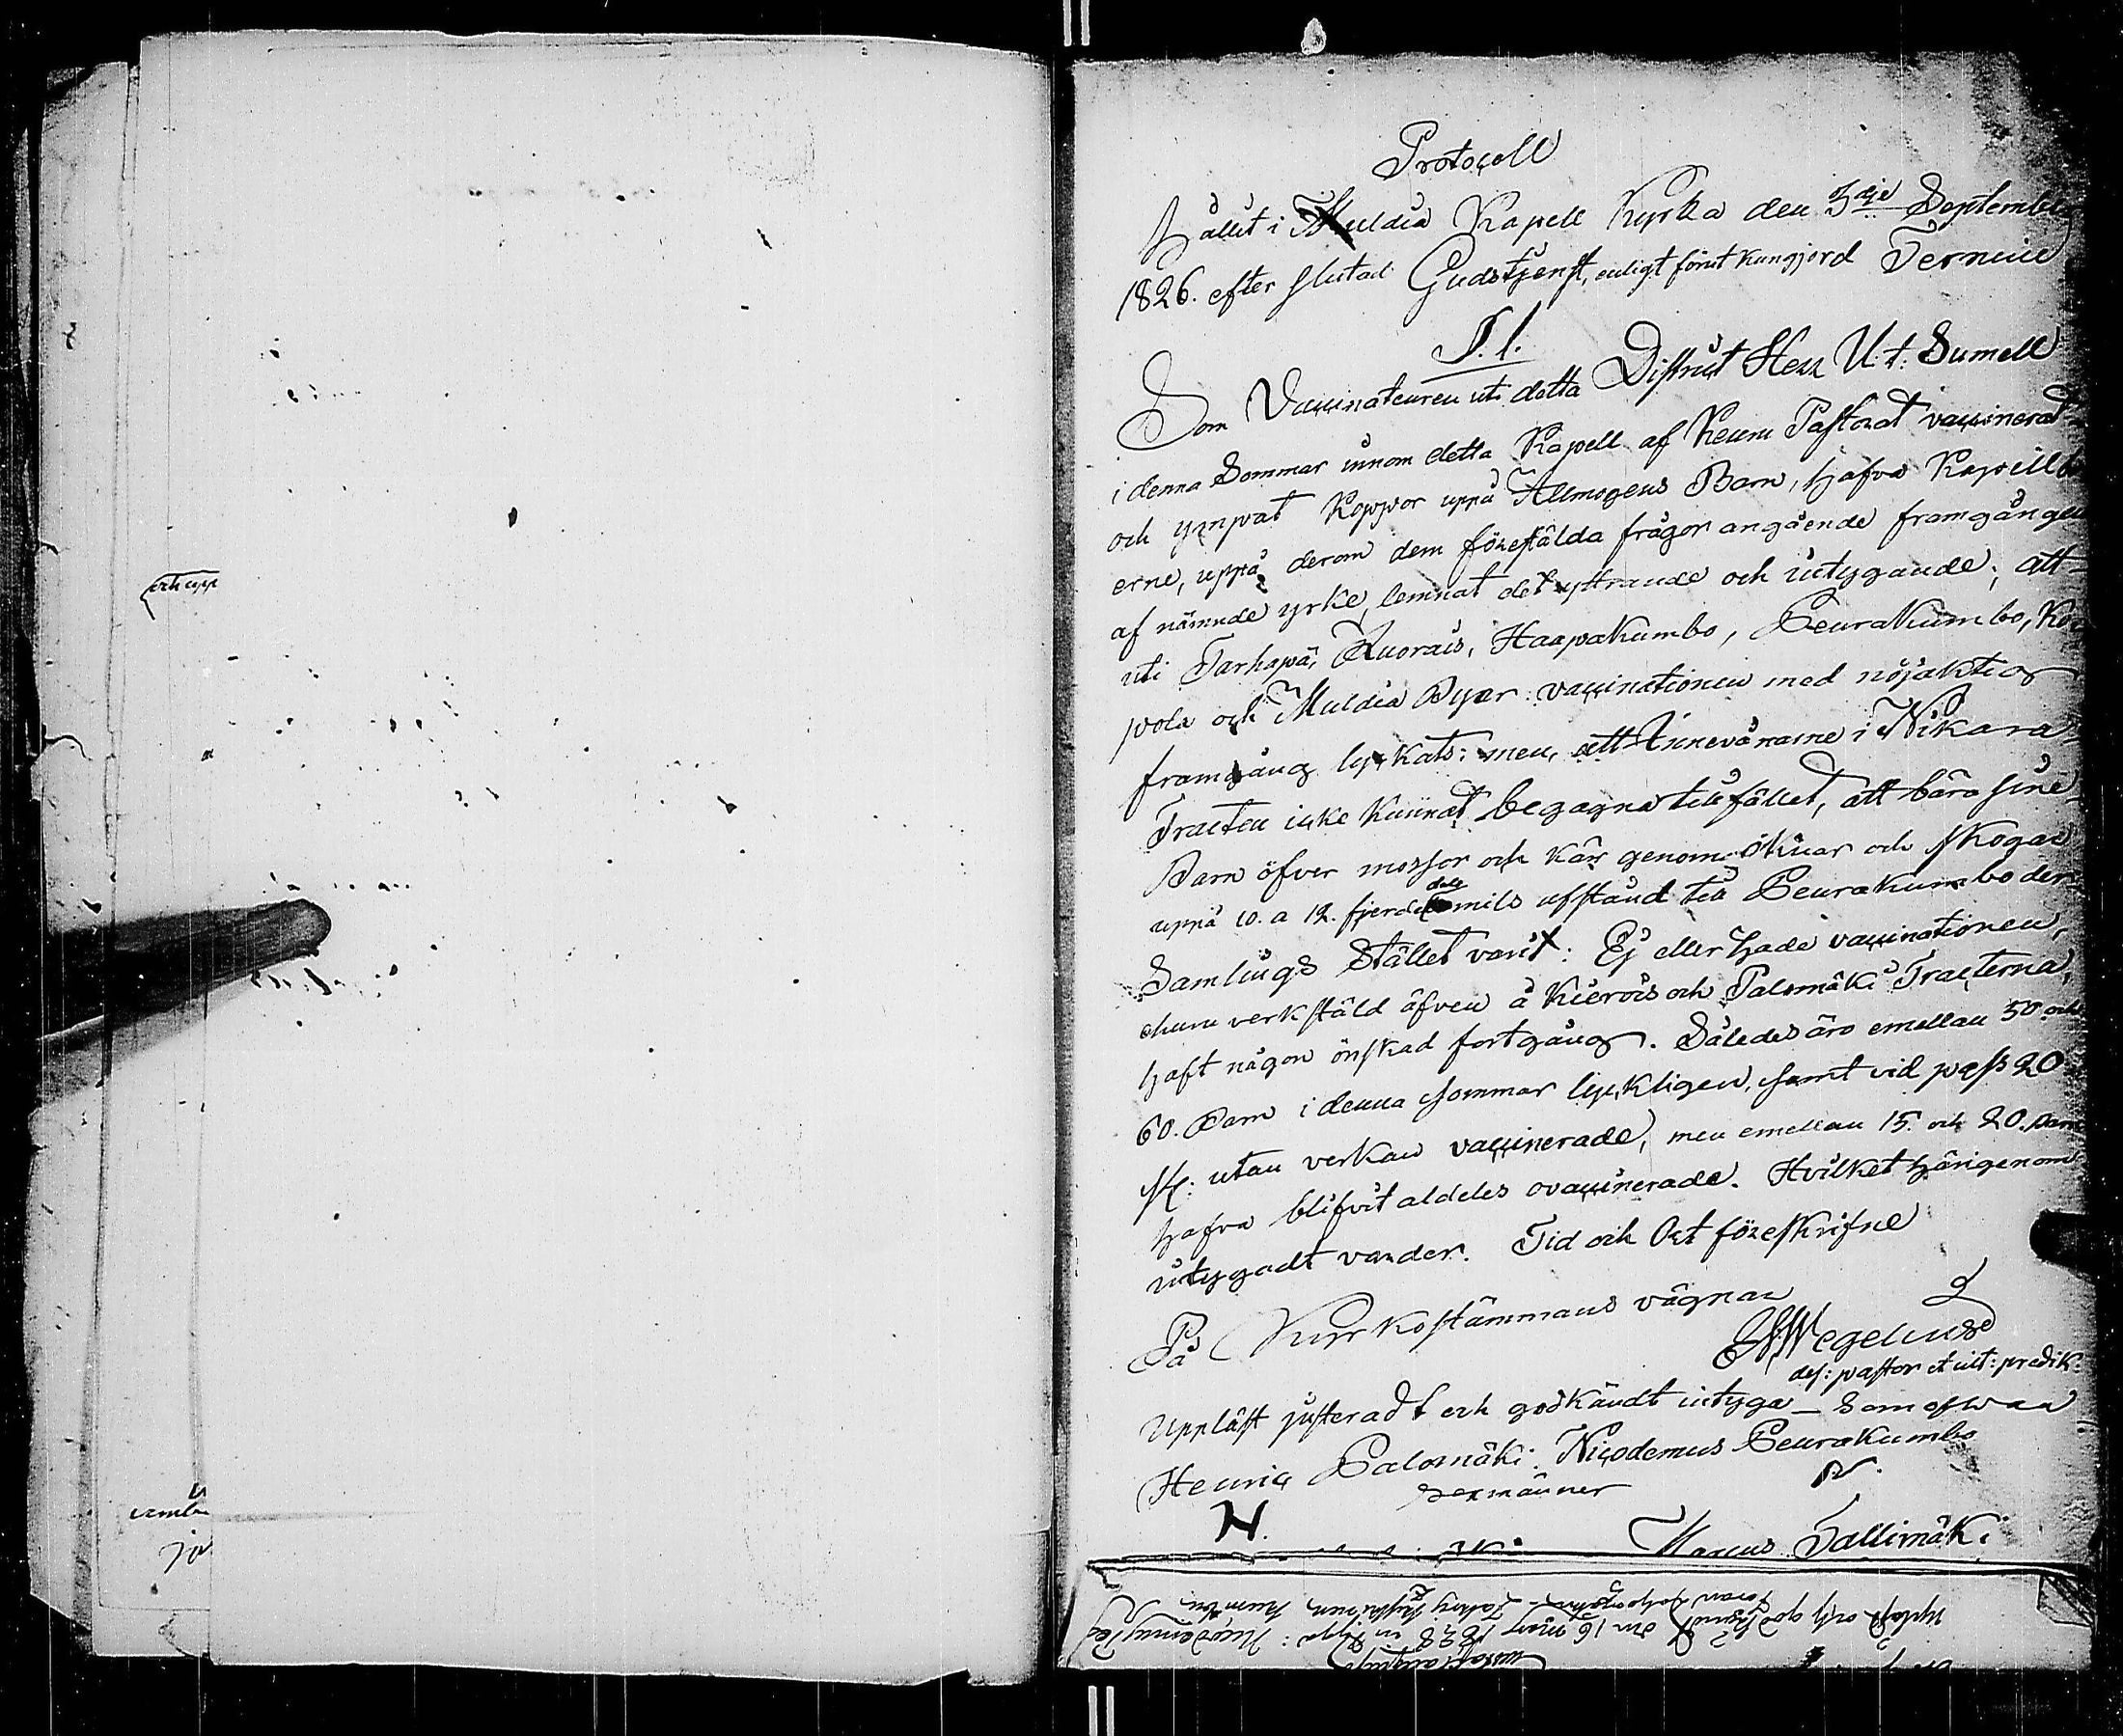 Protocoll
hållit i Muldia Kapell Kyrka den 3dje September
1826. efter slutad Gudstjenst, enligt förut kungjord Termine
§.1.
Som Vaccinateuren uti detta District Herr U. t. Sumell
i denna Sommar innom detta Kapell af Keuru Pastorat vaccinerat
och ympat Koppor uppå Allmogens Barn, hafva Kapellbo-
erne, uppå derom dem förestälda frågor angående framgången
af nämnde yrke, lemnat det yttrande och intygande; att
uti Tarhapä, Kuorais, Haapakumbo, Peurakumbo, Ko-
pola och Muldia Byar vaccinationen med nöjaktig
framgång lyckats: men, att Innevånarne i Nikara-
Tracten icke kunnat begagna tillfället, att bära sine
Barn öfver mossor och kär genom öknar och skogar
uppå 10. a 12. fjerdedels mils afstånd till Peurakumbo der
Samlings Stället varit: Ej eller hade vaccinationen,
ehuru verkstäld äfven å Kierois och Palomäki Tracterna,
haft någon önskad fortgång. Således äro emellan 50 och
60. Barn i denna sommar lyckligen, samt vid pass 20
st: utan verkan vaccinerade, men emellan 15. och 20. Barn
hafva blifvit aldeles ovaccinerade. Hvilket härigenom
intygadt varder. Tid och Ort föreskrifne
På Kyrkostämmans vägnar
Wegelius
def: pastor et ult: predik:
Uppläst justeradt och godkändt intyga
Henric Palomäki Nicodemus Peurakumbo
sexmänner
H.
Marcus Tallimäki
och upp